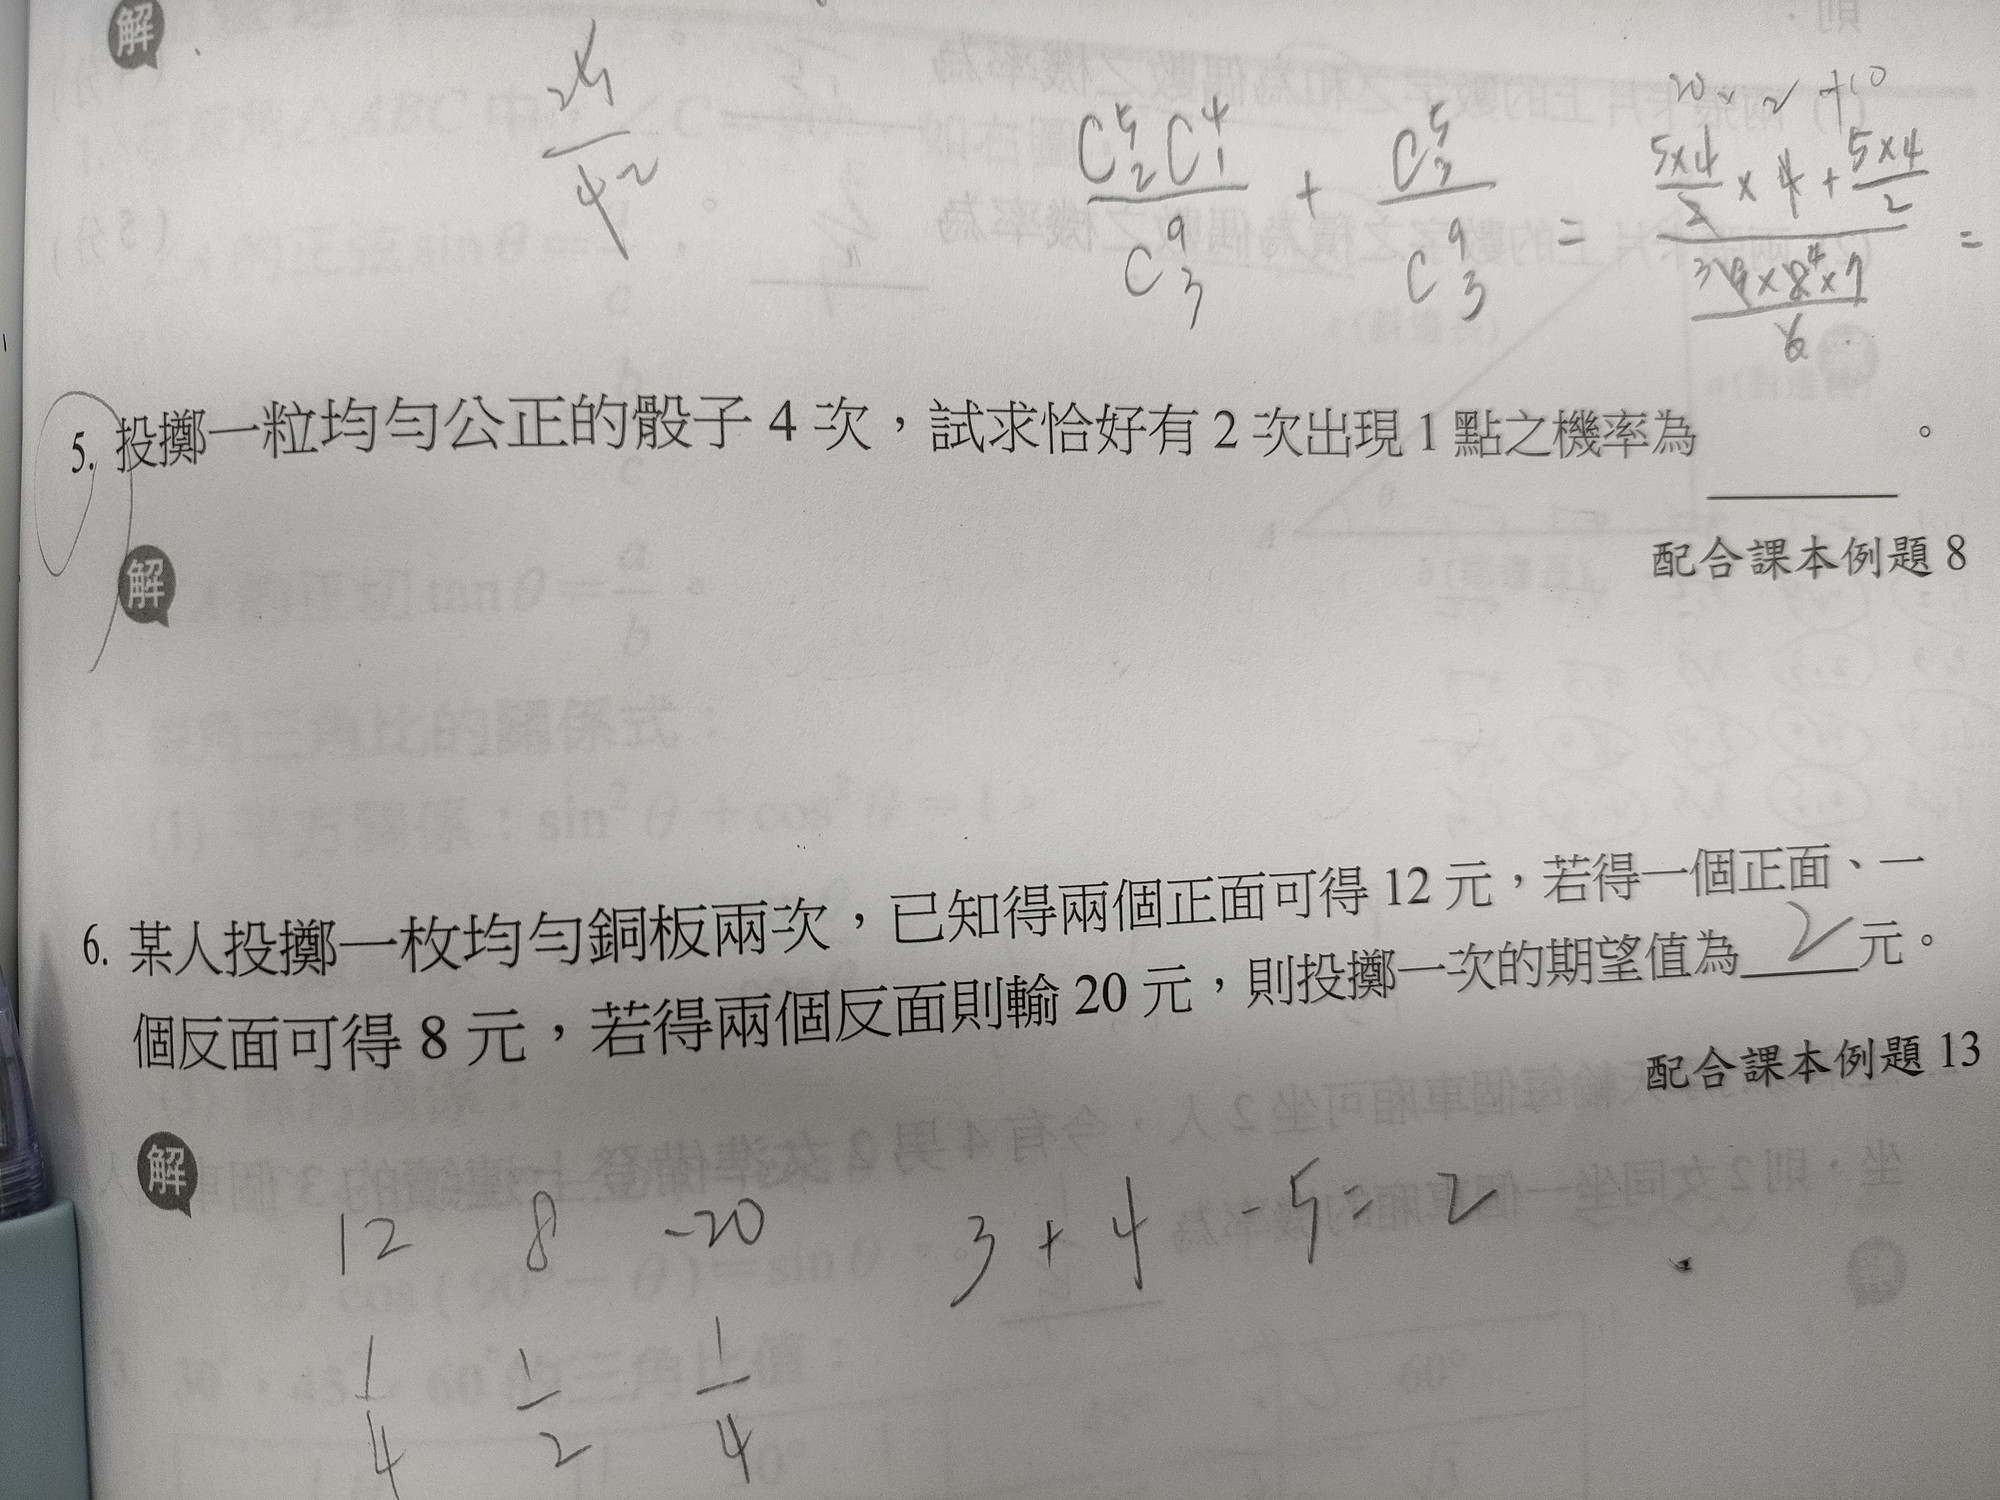 解
24
42
C⁵₂C⁴₁ / C⁹₃ + C⁵₃ / C⁹₃ = (5×4/2 × 4 + 5×4/2) / (9×8×7/6) =
20 × 2 +10
3 4
5. 投擲一粒均勻公正的骰子 4 次，試求恰好有 2 次出現 1 點之機率為 ______ 。
配合課本例題 8
解
6. 某人投擲一枚均勻銅板兩次，已知得兩個正面可得 12 元，若得一個正面、一
個反面可得 8 元，若得兩個反面則輸 20 元，則投擲一次的期望值為 2 元。
配合課本例題 13
解
12 8 -20 3 + 4 - 5 = 2
1/4 1/2 1/4